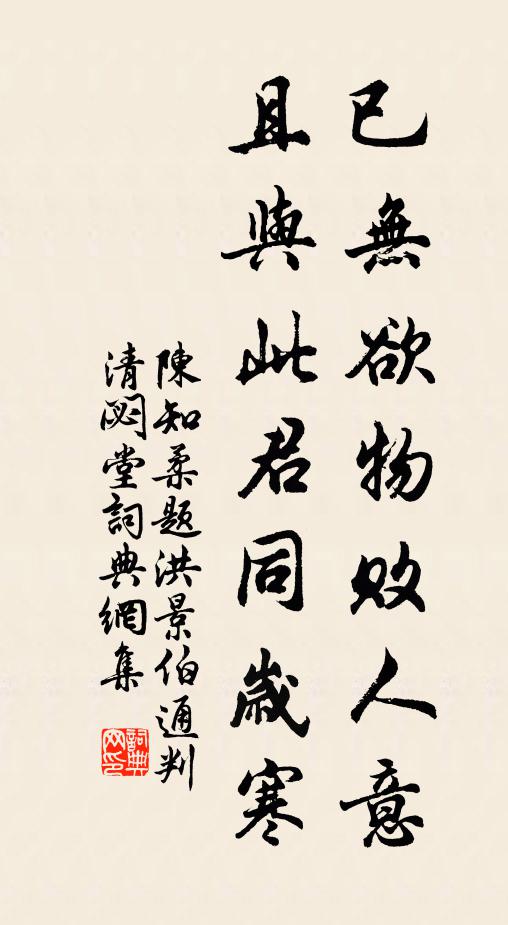 已無欲物敗人意
且與此君同歲寒
陳知柔題洪景伯通判
清閟堂詞典網集
詞典網印